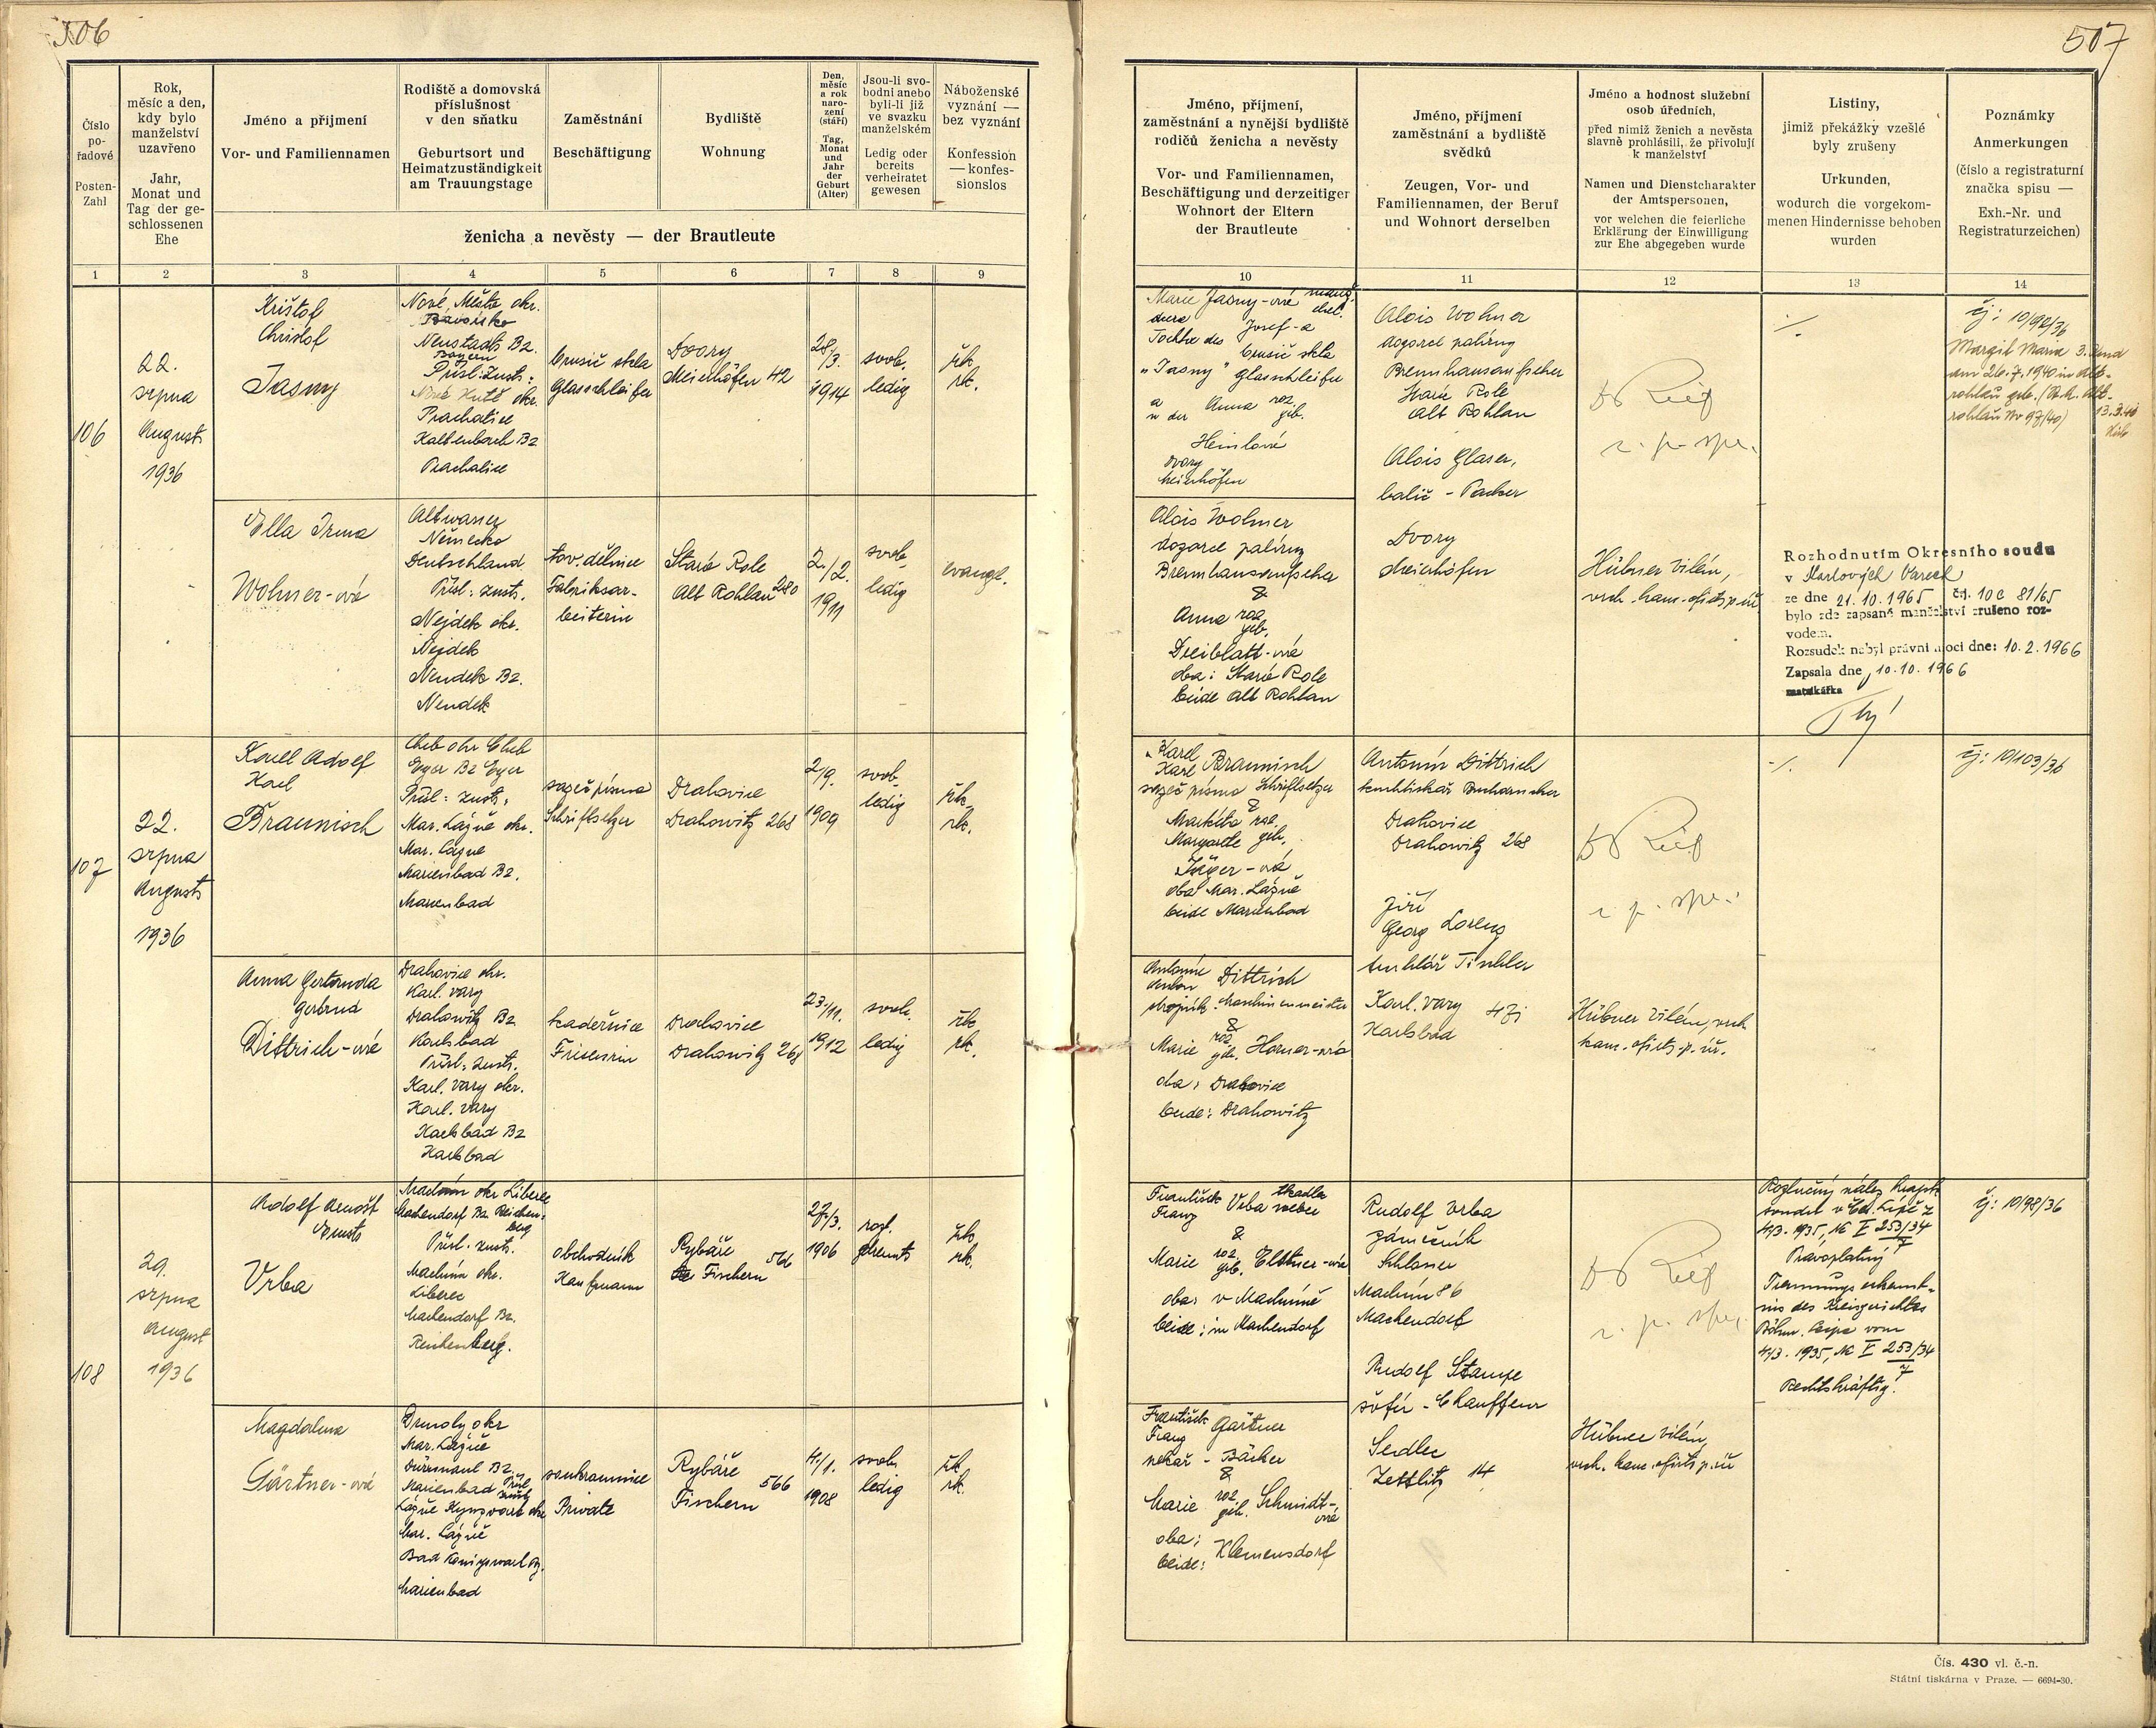 506
507
Číslo
po-
řadové
Posten-
Zahl
Rok,
měsíc a den,
kdy bylo
manželství
uzavřeno
Jahr,
Monat und
Tag der ge-
schlossenen
Ehe
Jméno a příjmení
Vor- und Familiennamen
Rodiště a domovská
příslušnost
v den sňatku
Geburtsort und
Heimatzuständigkeit
am Trauungstage
Zaměstnání
Beschäftigung
Bydliště
Wohnung
Den,
měsíc
a rok
naro-
zení
(stáří)
Tag,
Monat
und
Jahr
der
Geburt
(Alter)
Jsou-li svo-
bodni anebo
byli-li již
ve svazku
manželském
Ledig oder
bereits
verheiratet
gewesen
Náboženské
vyznání —
bez vyznání
Konfession
— konfes-
sionslos
ženicha a nevěsty — der Brautleute
1 2 3 4 5 6 7 8 9
Jméno, příjmení,
zaměstnání a nynější bydliště
rodičů ženicha a nevěsty
Vor- und Familiennamen,
Beschäftigung und derzeitiger
Wohnort der Eltern
der Brautleute
Jméno, příjmení
zaměstnání a bydliště
svědků
Zeugen, Vor- und
Familiennamen, der Beruf
und Wohnort derselben
Jméno a hodnost služební
osob úředních,
před nimiž ženich a nevěsta
slavně prohlásili, že přivolují
k manželství
Namen und Dienstcharakter
der Amtspersonen,
vor welchen die feierliche
Erklärung der Einwilligung
zur Ehe abgegeben wurde
Listiny,
jimiž překážky vzešlé
byly zrušeny
Urkunden,
wodurch die vorgekom-
menen Hindernisse behoben
wurden
Poznámky
Anmerkungen
(číslo a registraturní
značka spisu —
Exh.-Nr. und
Registraturzeichen)
10 11 12 13 14
106
22.
srpna
August
1936
Krištof
Christof
Jasny
Nové Město okr.
Bavorsko
Neustadt Bz.
Bayern
Přísl: Zust:
Nové Hutě okr.
Prachatice
Kaltenbach Bz
Prachatice
brusič skla
Glasschleifer
Dvory
Meierhöfen 42
28./3.
1914
svob.
ledig
řk.
rk.
Marie Jasny-ové manž.
dcera
Tochter des Josef-a
brusič skla
"Jasny" Glasschleifer
a
u der Anna roz.
geb.
Heinlová
Dvory
Meierhöfen
Alois Wohner
dozorce palírny
Brennhausaufseher
Stará Role
Alt Rohlau
Alois Glaser,
balič - Packer
Dvory
Meierhöfen
r. p. spr.
./.
čj: 10/92/36
Margit Maria 3. Kind
am 26.7.1940 in Alt-
rohlau geb. (St.A. Alt-
rohlau Nr 97/40)
Ella Irma
Wohner-ová
Altwasser
Německo
Deutschland
Přísl: zust.
Nejdek okr.
Nejdek
Neudek Bz.
Neudek
tov. dělnice
Fabriksar-
beiterin
Stará Role
Alt Rohlau 280
2./2.
1911
svob.
ledig
evangl.
Alois Wohner
dozorce palírny
Brennhausaufseher
&
Anna roz.
geb.
Dreiblatt-ová
oba: Stará Role
beide Alt Rohlau
Hübner Vilém,
vrch. kanc. oficiál p. úř.
Rozhodnutím Okresního soudu
v Karlových Varech
ze dne 21.10.1965 č.j. 10 C 81/65
bylo zde zapsané manželství zrušeno roz-
vodem.
Rozsudek nabyl právní moci dne: 10.2.1966
Zapsala dne 10.10.1966
matrikářka
107
22.
srpna
August
1936
Karel Adolf
Karl
Braunisch
Cheb okr Cheb
Eger Bz Eger
Přísl: zust:
Mar. Lázně okr.
Mar. Lázně
Marienbad Bz.
Marienbad
sazeč písma
Schriftsetzer
Drahovice
Drahowitz 268
2./9.
1909
svob.
ledig
řk.
rk.
Karel
Karl Braunisch
sazeč písma Schriftsetzer
&
Markéta roz.
Margarete geb.
Jäger-ová
oba Mar. Lázně
beide Marienbad
Antonín Dittrich
knihtiskař Buchdrucker
Drahovice
Drahowitz 268
Jiří
Georg Lorenz
truhlář Tischler
Karl. Vary
Karlsbad
r. p. spr.
./.
čj: 10/103/36
Anna Gertruda
Gertrud
Dittrich-ová
Drahovice okr.
Karl. Vary
Drahowitz Bz
Karlsbad
Přísl: zust.
Karl. Vary okr.
Karl. Vary
Karlsbad Bz
Karlsbad
kadeřnice
Friseurin
Drahovice
Drahowitz 268
23./11.
1912
svob.
ledig
řk.
rk.
Antonín
Anton Dittrich
strojník - Maschinenmeister
&
Marie roz.
geb. Horner-ová
oba: Drahovice
beide: Drahowitz
Hübner Vilém, vrch
kanc. oficiál p. úř.
108
29.
srpna
August
1936
Adolf Arnošt
Ernst
Vrba
Machnín okr Liberec
Machendorf Bz. Reichen-
berg
Přísl. zust.
Machnín okr.
Liberec
Machendorf Bz.
Reichenberg.
obchodník
Kaufmann
Rybáře
Fischern 566
27./3.
1906
rozl.
getrennt
řk.
rk.
František
Franz Vrba tkadlec
weber
&
Marie roz.
geb. Elstner-ová
oba: v Machníně
beide: in Machendorf
Rudolf Vrba
zámečník
Schlosser
Machnín 86
Machendorf
Rudolf Stampe
šofér - Chauffeur
Sedlec
Zettlitz 14
r. p. spr.
Rozlučný nález Krajsk.
soudu v Čes. Lípě z
4/3. 1935, Nc I 253/34
7
Pravoplatný
Trennungserkennt-
nis des Kreisgerichtes
Böhm. Leipa vom
4/3. 1935, Nc I 253/34
7
Rechtskräftig.
čj: 10/98/36
Magdalena
Gärtner-ová
Drmoly okr
Mar. Lázně
Dürrmaul Bz.
Marienbad Přísl
zust
Lázně Kynzvart okr
Mar. Lázně
Bad Königswart Bz.
Marienbad
soukromnice
Private
Rybáře
Fischern 566
4./1.
1908
svob.
ledig
řk.
rk.
František
Franz Gärtner
pekař - Bäcker
&
Marie roz.
geb. Schmidt-
ová
oba:
beide: Klemensdorf
Hübner Vilém,
vrch. kanc. oficiál p. úř
Čís. 430 vl. č.-n.
Státní tiskárna v Praze. — 6694-30.